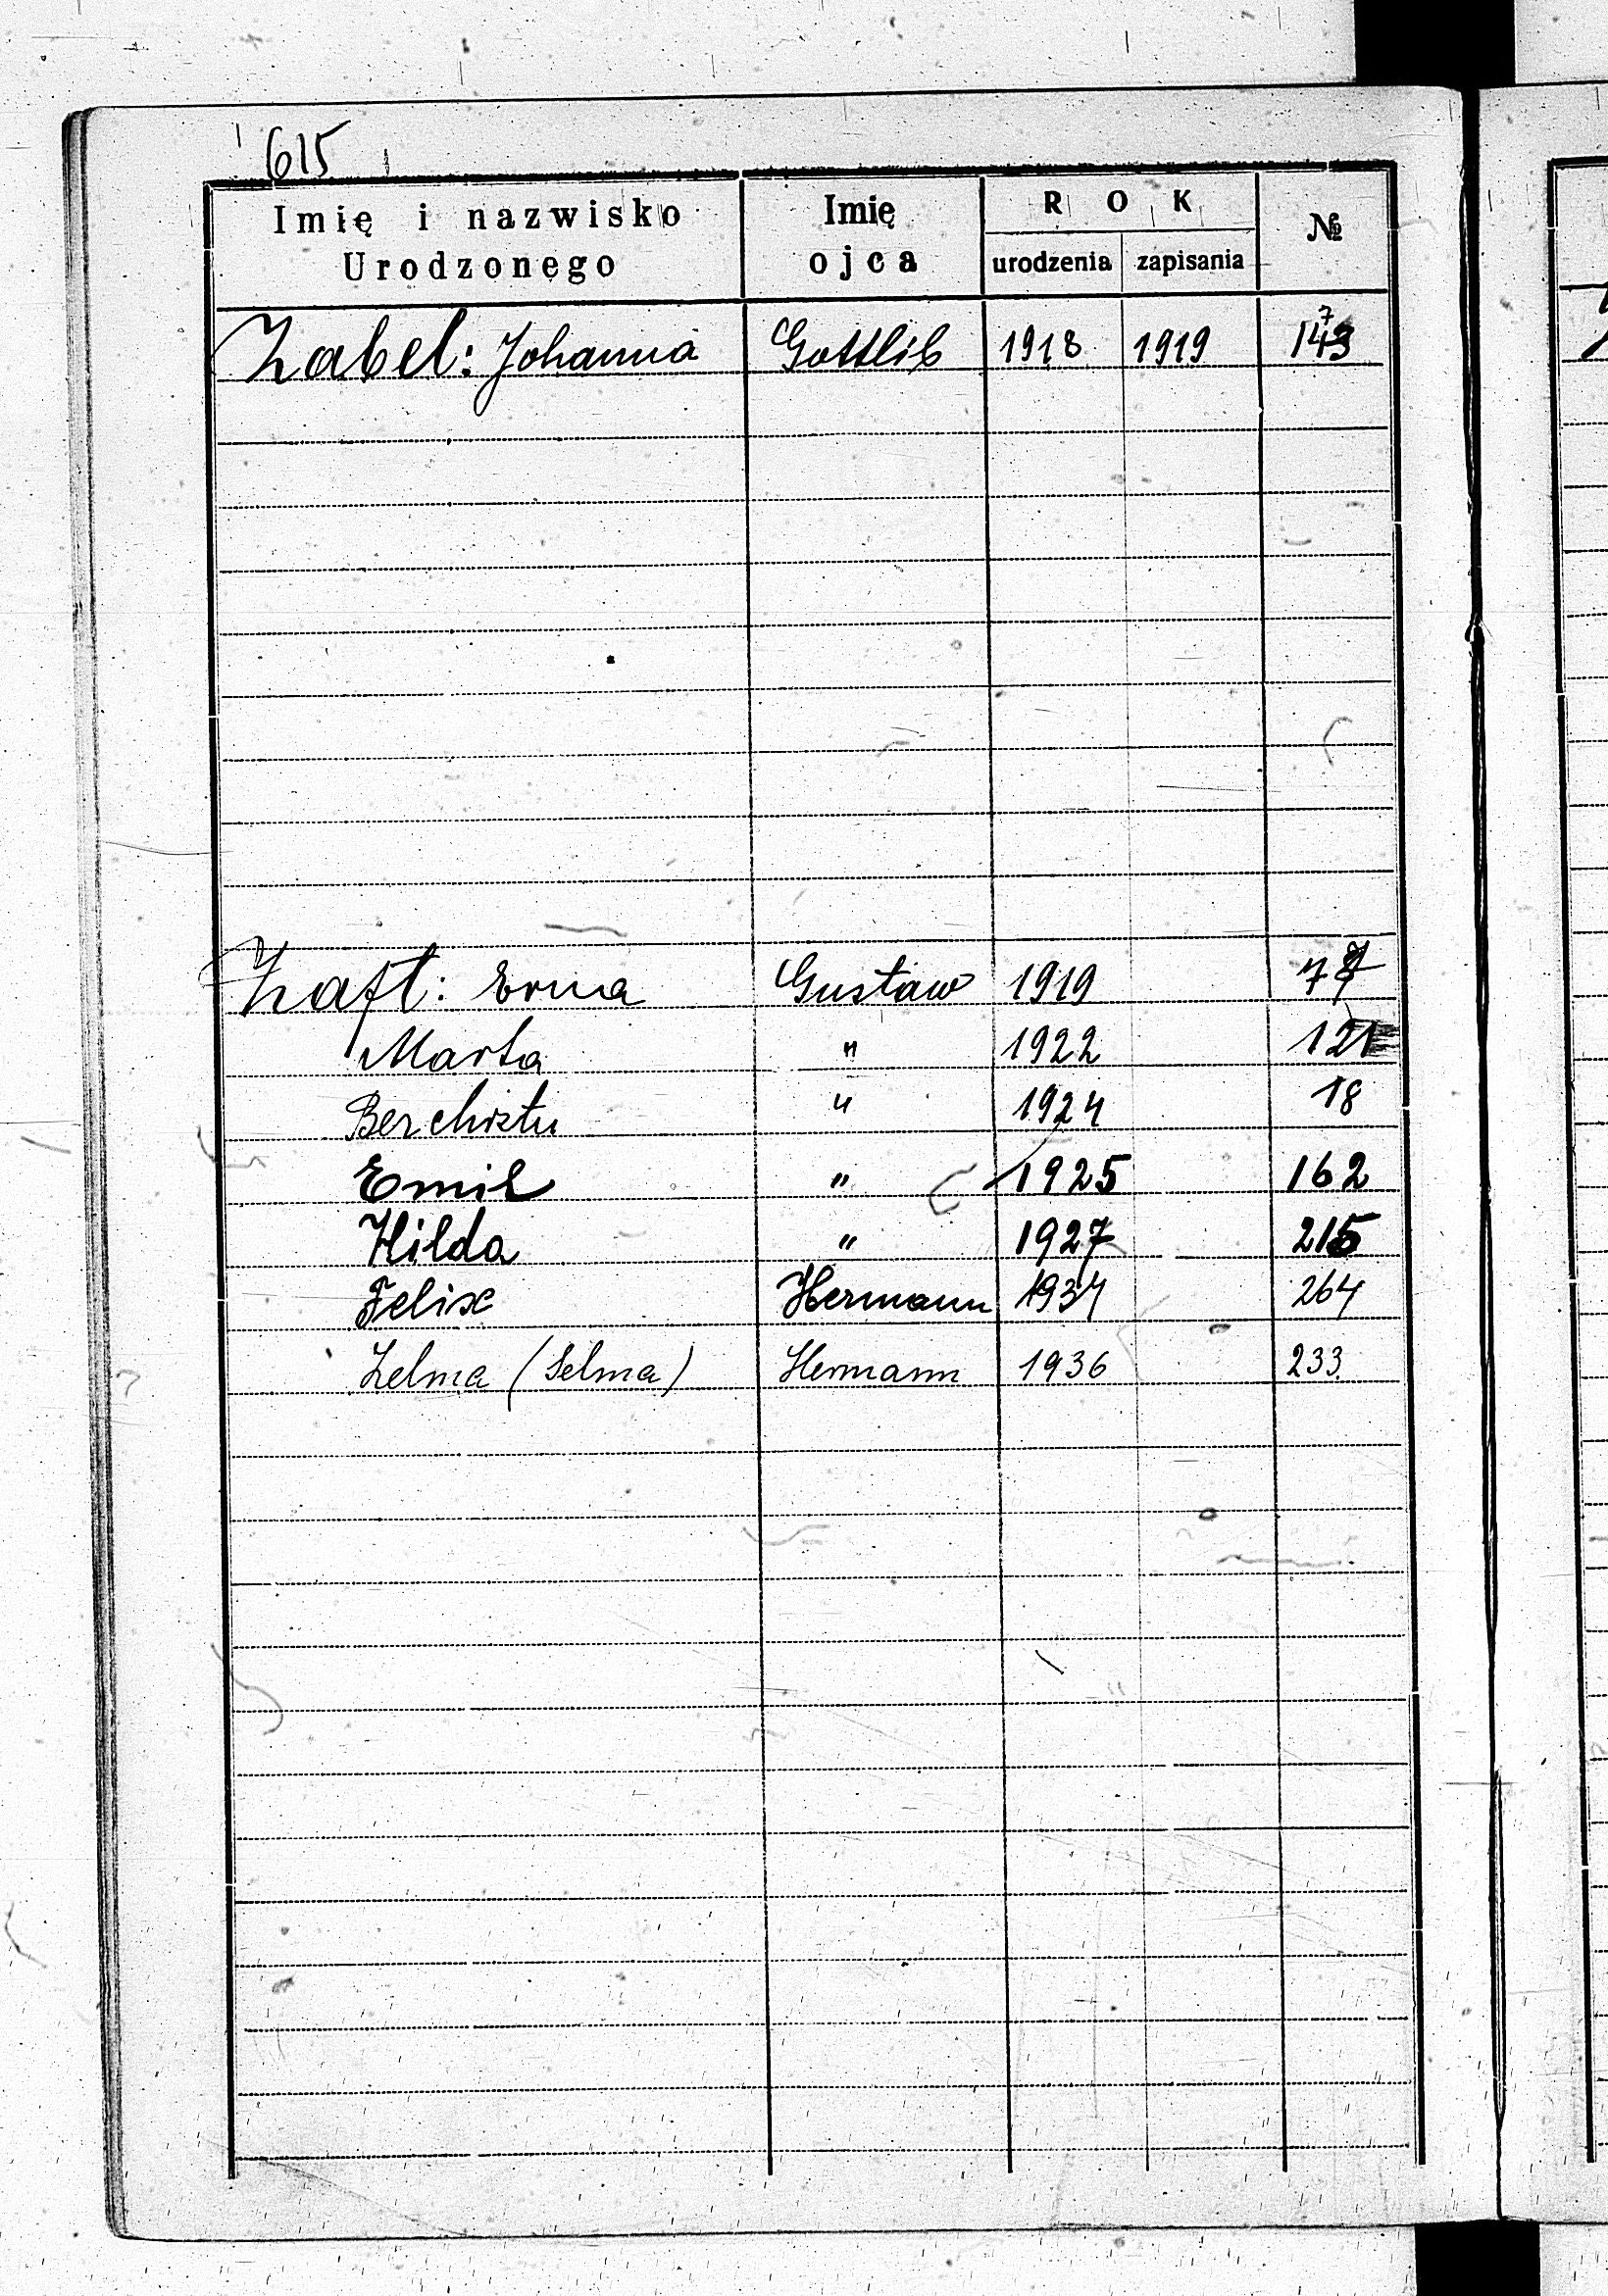 615
Imię i nazwisko Urodzonego
Imię ojca
ROK
urodzenia zapisania
№
Zabel: Johanna Gottlib 1918 1919
Zaft: Erna Gustaw 1919
Marta " 1922 121
Ber chrztu " 1924 18
Emil " 1925 162
Hilda " 1927 215
Felix Hermann 1934 264
Zelma (Selma) Hermann 1936 233